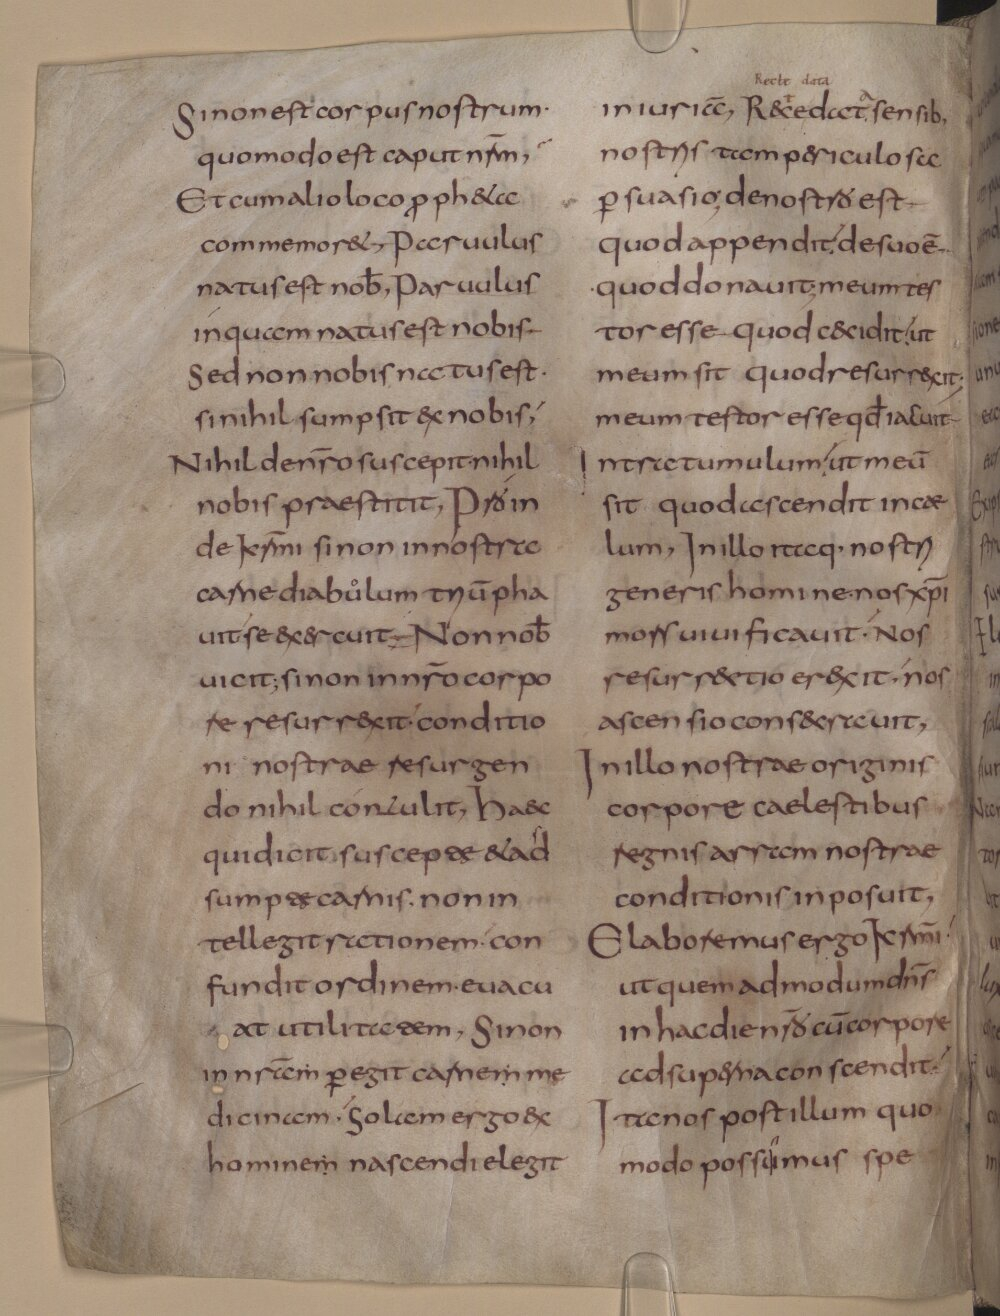 Si non est corpus nostrum·
quomodo est caput nr̄m,
Et cum alio loco p̱roph&a
commemor&, Paruulus
natus est nob̄, Paruulus
inquam natus est nobis
Sed non nobis natus est·
si nihil sumpsit ex nobis;
Nihil de nr̄o suscepit nihil
nobis praestitit, Pr̄o in
de kr̄mi si non in nostra
carne diabulum triūpha
uit se exercuit Non nob̄
uicit; si non in nr̄o corpo
re resurrexit conditio
ni nostrae resurgen
do nihil contulit, Haec
qui dicit suscepte & ad
sumpte carnis. non in
tellegit rationem con
fundit ordinem euacu
at utilitatem, Si non
in nram p̱egit carnem me
dicinam· Solam ergo ex
hominem nascendi elegit
Recte data
iniuriā, R&e data sensib;
nostris tam periculosa
p̱suasio; de nostro est
quod appendit; de suo ē
quod donauit; meum tes
tor esse quod cecidit; ut
meum sit quod resurrexit;
meum testor esse qd̄ iacuit
Intra tumulum; ut meū
sit quod ascendit in cae
lum, In illo itaq· nostri
generis homine· nos xp̄i
mors uiuificauit· Nos
resurrectio erexit· nos
ascensio consecrauit,
In illo nostrae originis
corpore caelestibus
regnis arram nostrae
conditionis inposuit,
Elaboremus ergo kr̄mi
ut quemadmodum dn̄s
in hac die nr̄o cū corpore
ad superna conscendit·
Ita nos post illum quo
modo possumus spe